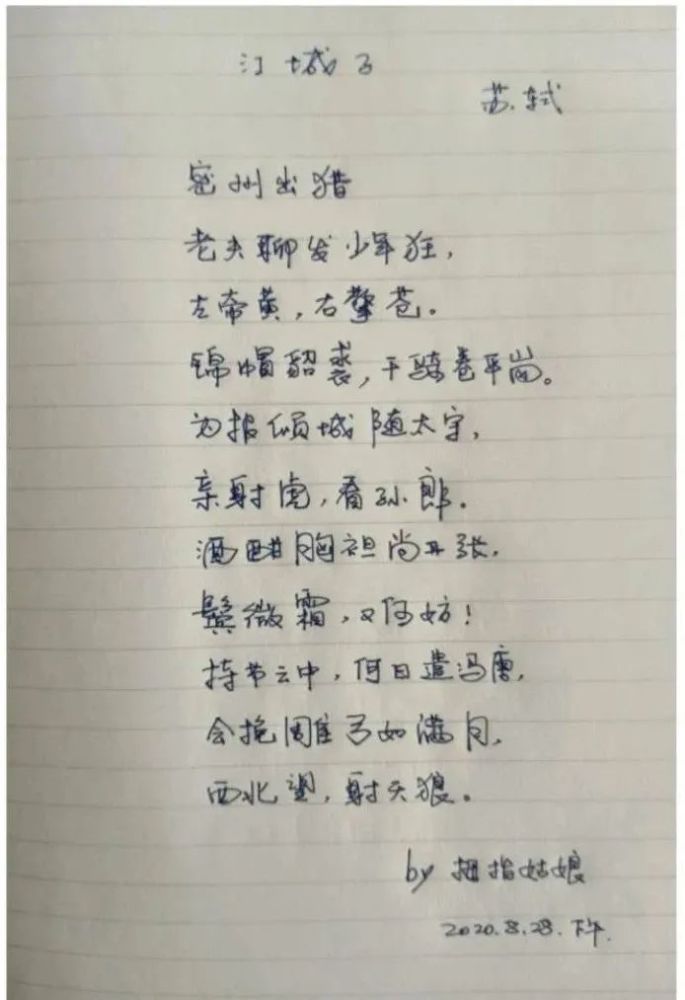 江城子
苏轼
密州出猎
老夫聊发少年狂,
左牵黄,右擎苍。
锦帽貂裘,千骑卷平岗。
为报倾城随太守,
亲射虎,看孙郎.
酒酣胸袒尚开张.
鬓微霜,又何妨!
持节云中,何日遣冯唐,
会挽雕弓如满月,
西北望,射天狼。
by 拇指姑娘
2020.8.28.下午.